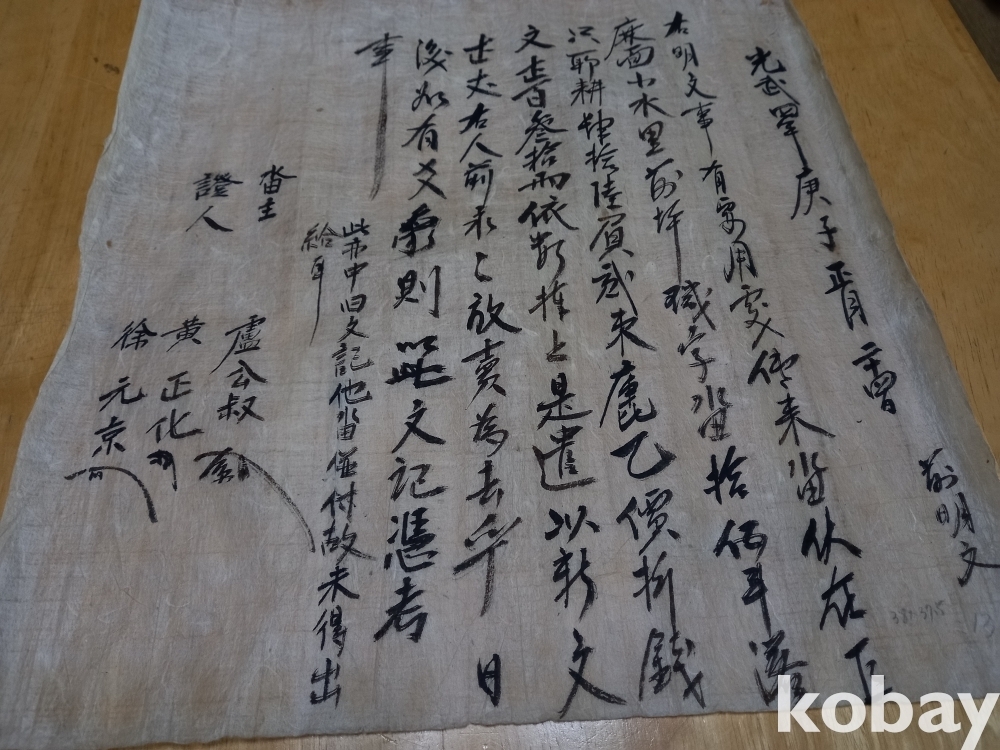 光武四年庚子正月 日 前明文
右明文事有要用處傳來畓伏在
麻面小水里前坪 字畓拾伍斗落
只耶耕 拾陸負貳束 乙價折錢
文 百叁拾兩依數捧上是遣以新文
右人前永〻放賣為去乎日
後如有爻象則以此文記憑考
事
此亦中旧文記他畓倂付故未得出
給耳
畓主 盧公叔
證人 黃正化
徐元京
kobay